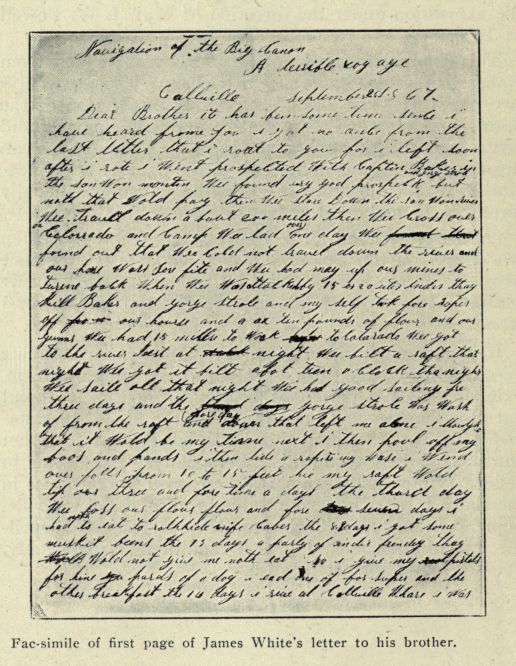 Navigation of the Big Canon
A terrible voyage
Callville September
Dear Brother it has ben some time senCe i
have heard frome you i got no ance from the
last letter that i roat to you for i left soon
after i rote i Went prospected With Captin Baker
the son Won montin Wee found very god prospeck but
noth that Wold pay then Wee store Down the son Won river
Wee travel down a bout 200 miles then Wee Cross over
on Colorado and Camp Wee lad over one day Wee
found out that Wee Cold not travel down the river and
our horse Wars sore fite and Wee had may up our mines to
turene back When Wee Was attacked by 15 or 20 utes indis they
kill Baker and gorge strole and my self took fore ropes
off our hourse and a ax ten pounds of flour and our
gunns Wee had 15 milles to Wok to Colorado Wee got
to the river Jest at night Wee bilt a raft that
night Wee got it bilt abot teen o Clock tha night
Wee saile all that night Wee had good sailing fro
three days and the fore day gorge strole Was Wash
of from the raft and down that left me alone i thought
that it Wold be my time next i then pool off my
boos and pands i then tide a rope to my Wase i Wend
over falls from 10 to 15 feet hie my raft Wold
tip over three and fore time a days the third day
Wee loss our flour flour and fore seven days i
had noth to eat to rathhide nife Caber the 8 days i got some
muskit beens the 13 days a party of indis frendey thay
Wold not give me noth eat so i give my pistols
for hine pards of a dog i ead one of for super and the
other breakfast the 14 days i rive at Callville Whare i Was
Fac-simile of first page of James White's letter to his brother.